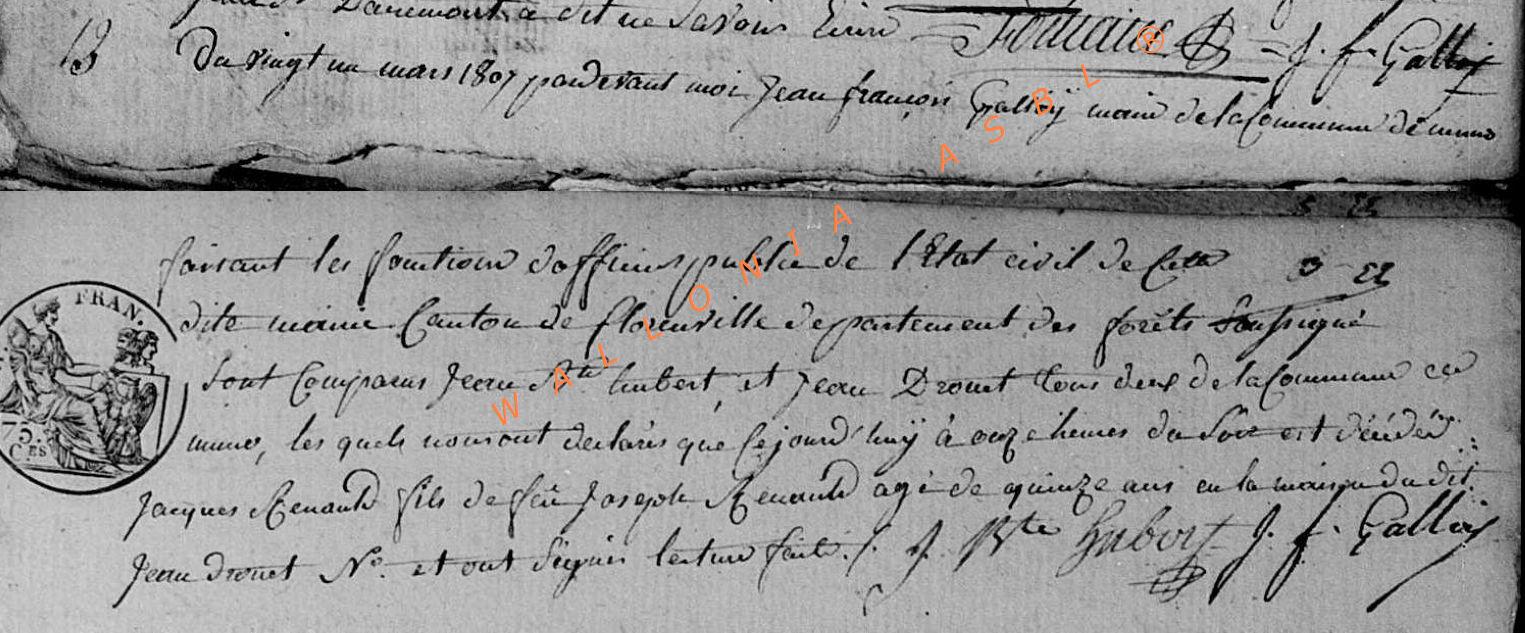 a dit ne Savoir Ecrire J. f. Gallois
13 Du vingt un mars 1807 pardevant moi Jean françois Galloÿ maire de la Commune demuno
faisant les fonctions dofficier public de l'Etat civil de Cette
dite mairie Canton de florenville departement des forêts Soussigné
Sont Comparus Jean Bte hubert, et Jean Drouet tous deux de la Commune
muno, les quels nous ont declarés que Cejourd'huÿ à onze heures du Soir est décédé
Jacques Renauld fils de feu Joseph Renauld agé de quinze ans en la maison du dit
Jean drouet No. et ont Signés lecture faite ./. J Bte hubert J. f. Gallois
FRAN.
75.
CES
WALLONIA ASBL ®